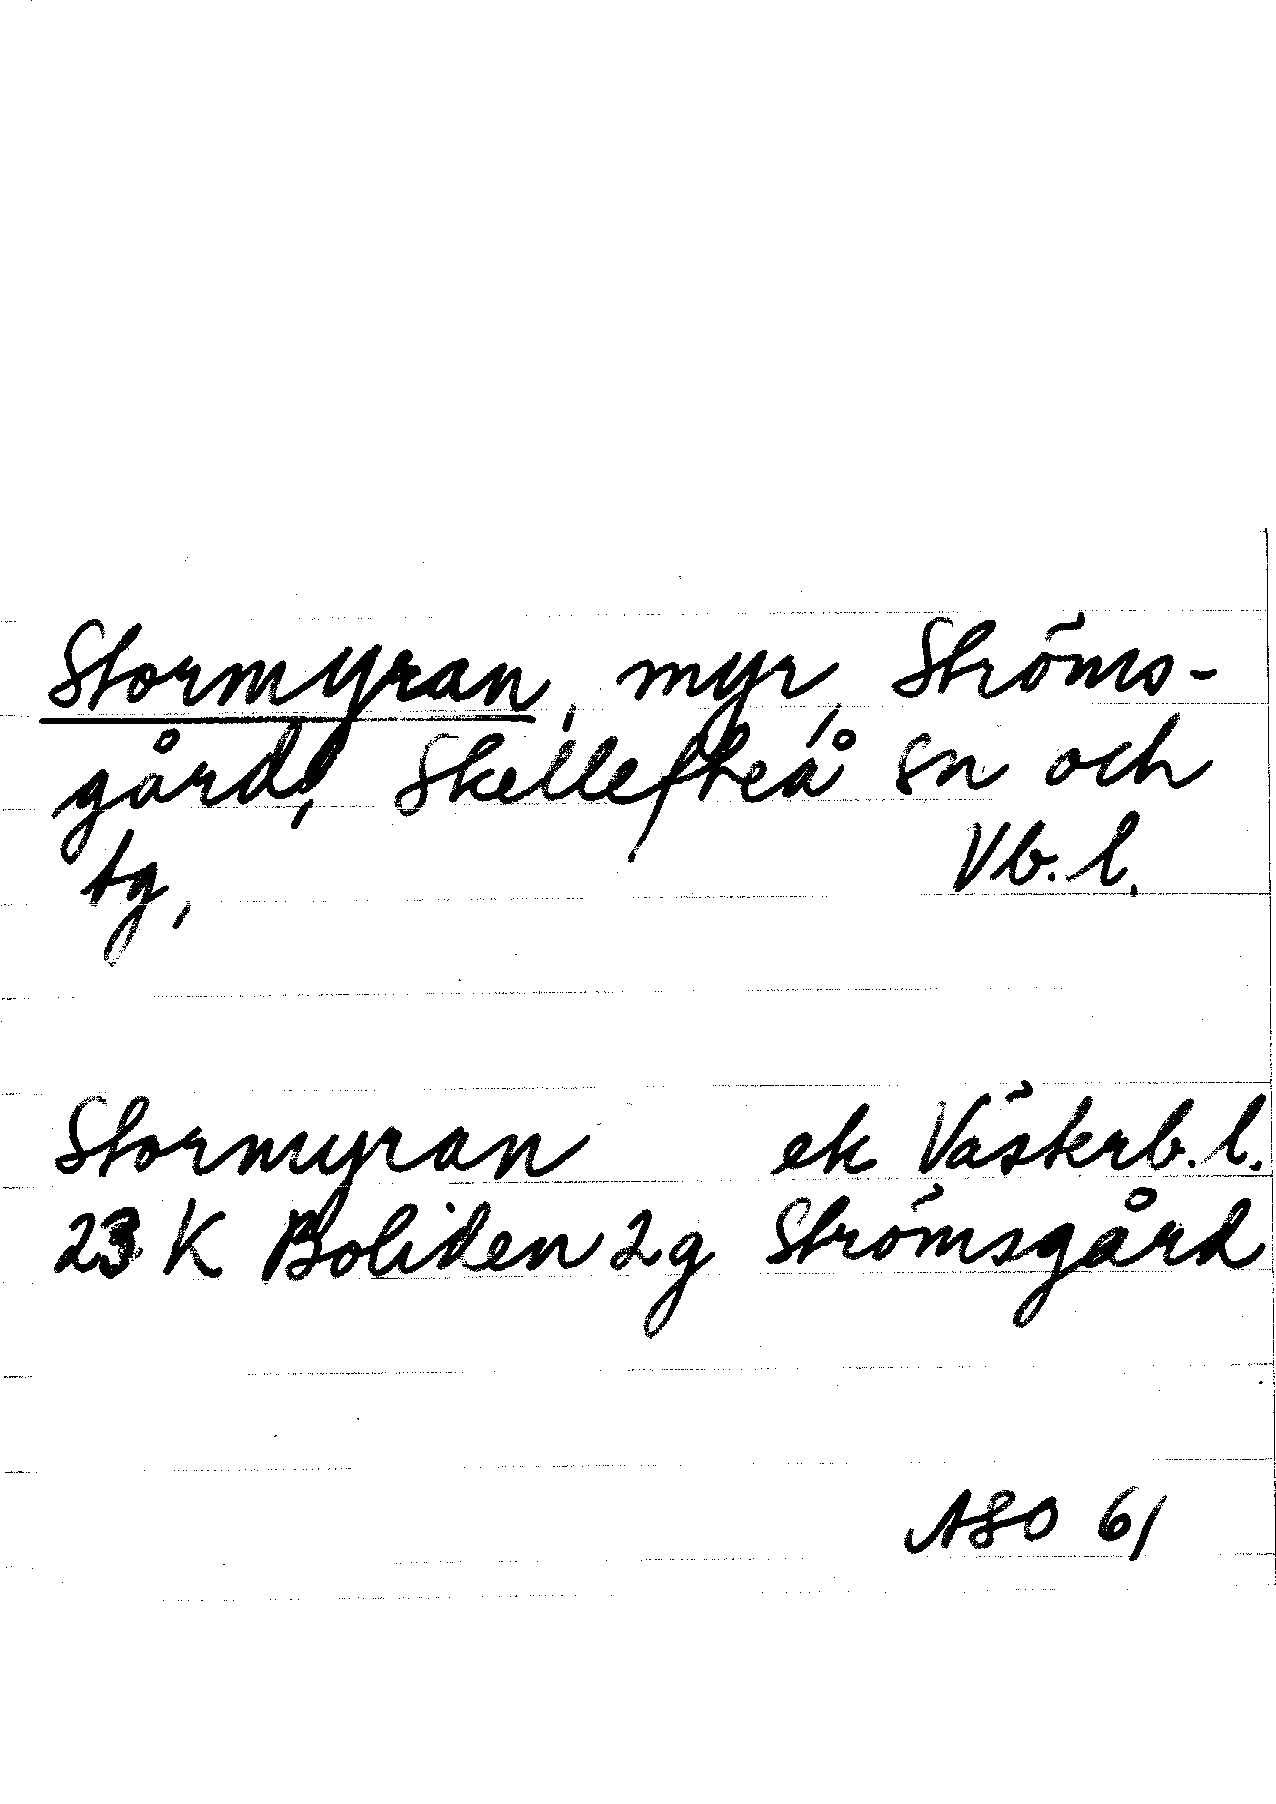 Stormyran, myr, Ströms-
gård, Skellefteå sn och
tg, Vb. l.
Stormyran ek Västerb. l.
23 K Boliden 2g Strömsgård
ASO 61